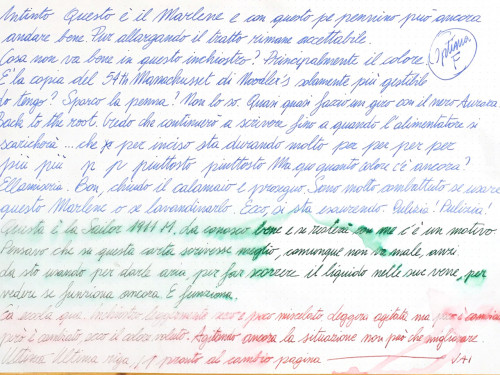 Intinto Questo è il Marlene e con questo pennino può ancora
andare bene. Pur allargando il tratto rimane accettabile.
Cosa non va bene in questo inchiostro? Principalmente il colore
È la copia del 54th Massachuset di Noodler's solamente più gestibile
lo tengo? Sporco la penna? Non lo so. Quasi quasi faccio un giro con il nero Aurora
Back to the root. Credo che continuerò a scrivere fino a quando l'alimentatore si
scaricherà ... che per inciso sta durando molto per per per per
più più p p piuttosto piuttosto Ma qui quanto colore c'è ancora?
Ellamiseria. Bon, chiudo il calamaio e proseguo. Sono molto combattuto se usare
questo Marlene o se lavandinarlo. Ecco, si sta esaurendo. Pulizia! Pulizia!
Optima
F
Questa è la Sailor 1911 M. La conosco bene e in realtà con me c'è un motivo
Pensavo che su questa carta scrivesse meglio, comunque non va male, anzi.
La sto usando per darle aria per far scorrere il liquido nelle sue vene, per
vedere se funziona ancora. E funziona.
poco miscelato. Leggera agitata ma, però è cambiato
però è cambiato, ecco il colore voluto. Agitando ancora la situazione non può che migliorare.
Ultima Ultima riga, pronto al cambio pagina